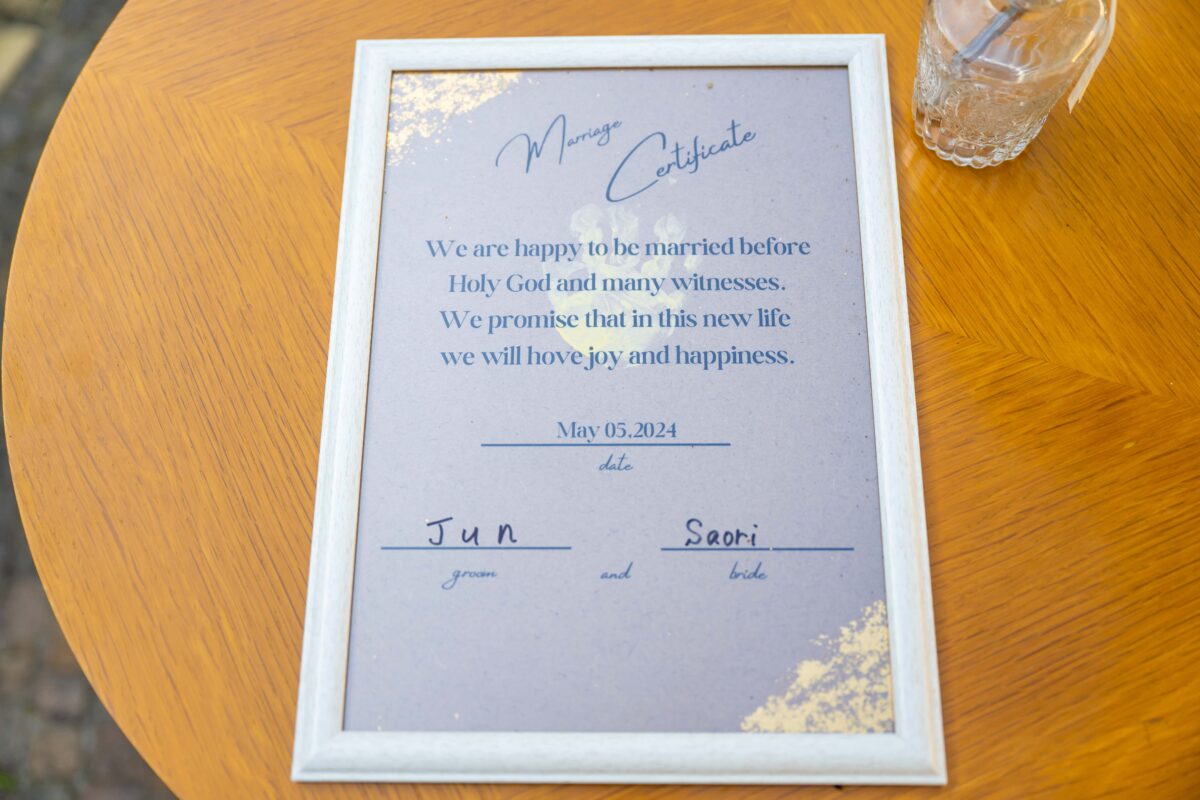 Marriage
Certificate
We are happy to be married before
Holy God and many witnesses.
We promise that in this new life
we will hove joy and happiness.
May 05,2024
date
Jun Saori
groom and bride